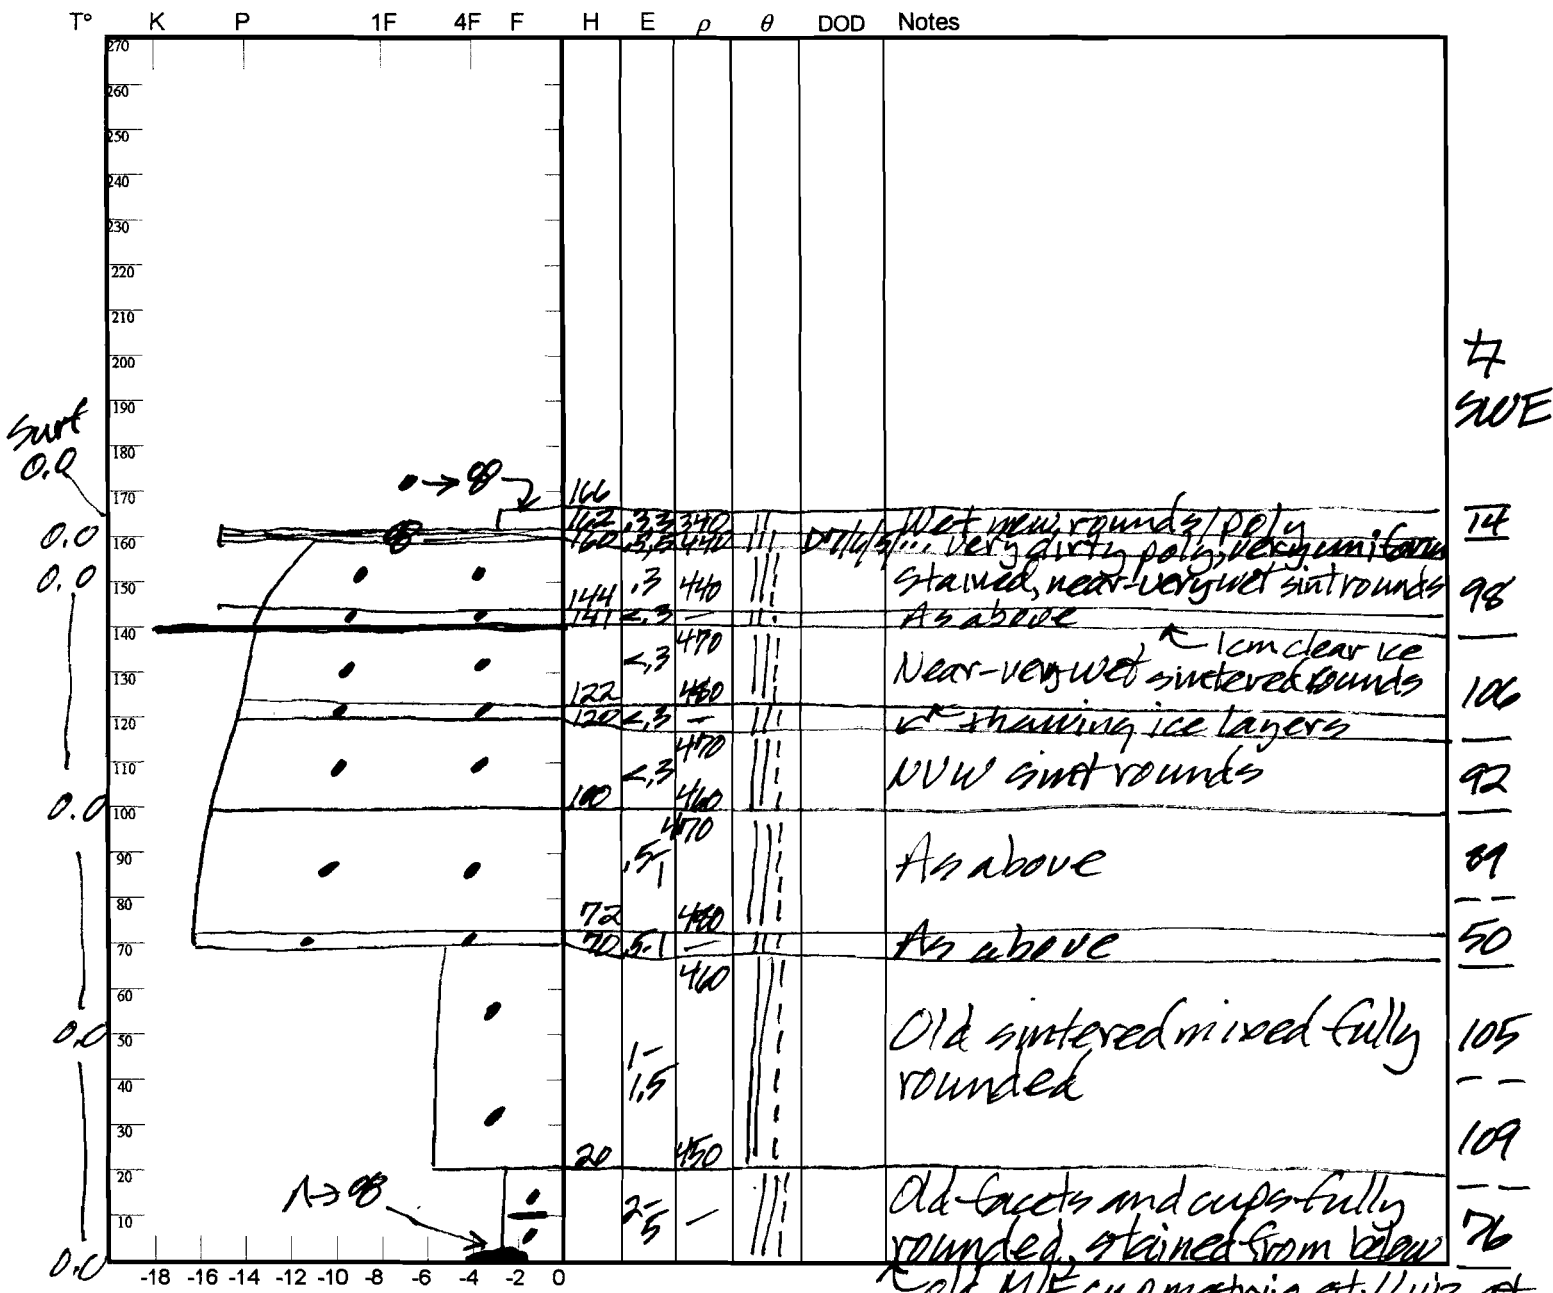 T° K P 1F 4F F H E ρ θ DOD Notes
270
260
250
240
230
220
210
200
190
180
170
160
150
140
130
120
110
100
90
80
70
60
50
40
30
20
10
-18 -16 -14 -12 -10 -8 -6 -4 -2 0
Surf
0.0
0.0
0.0
0.0
0.0
0.0
SWE
166
162 .3 340 Wet new, rounds/poly 14
160 440 very dirty poly, very uniform
.3 440 Stained, near-very wet sint rounds 98
144
141 <.3 — As above
← 1cm clear ice
470
<.3 Near-very wet sintered rounds
122 480 106
120 <.3 — thawing ice layers
470
<.3 NVW sint rounds 92
100 460
470
.5-1 As above 89
72 480
70 .5-1 — As above 50
460
1-1.5 Old sintered mixed fully 105
rounded
109
20 450
2-5 — Old facets and cups fully
rounded, stained from below 76